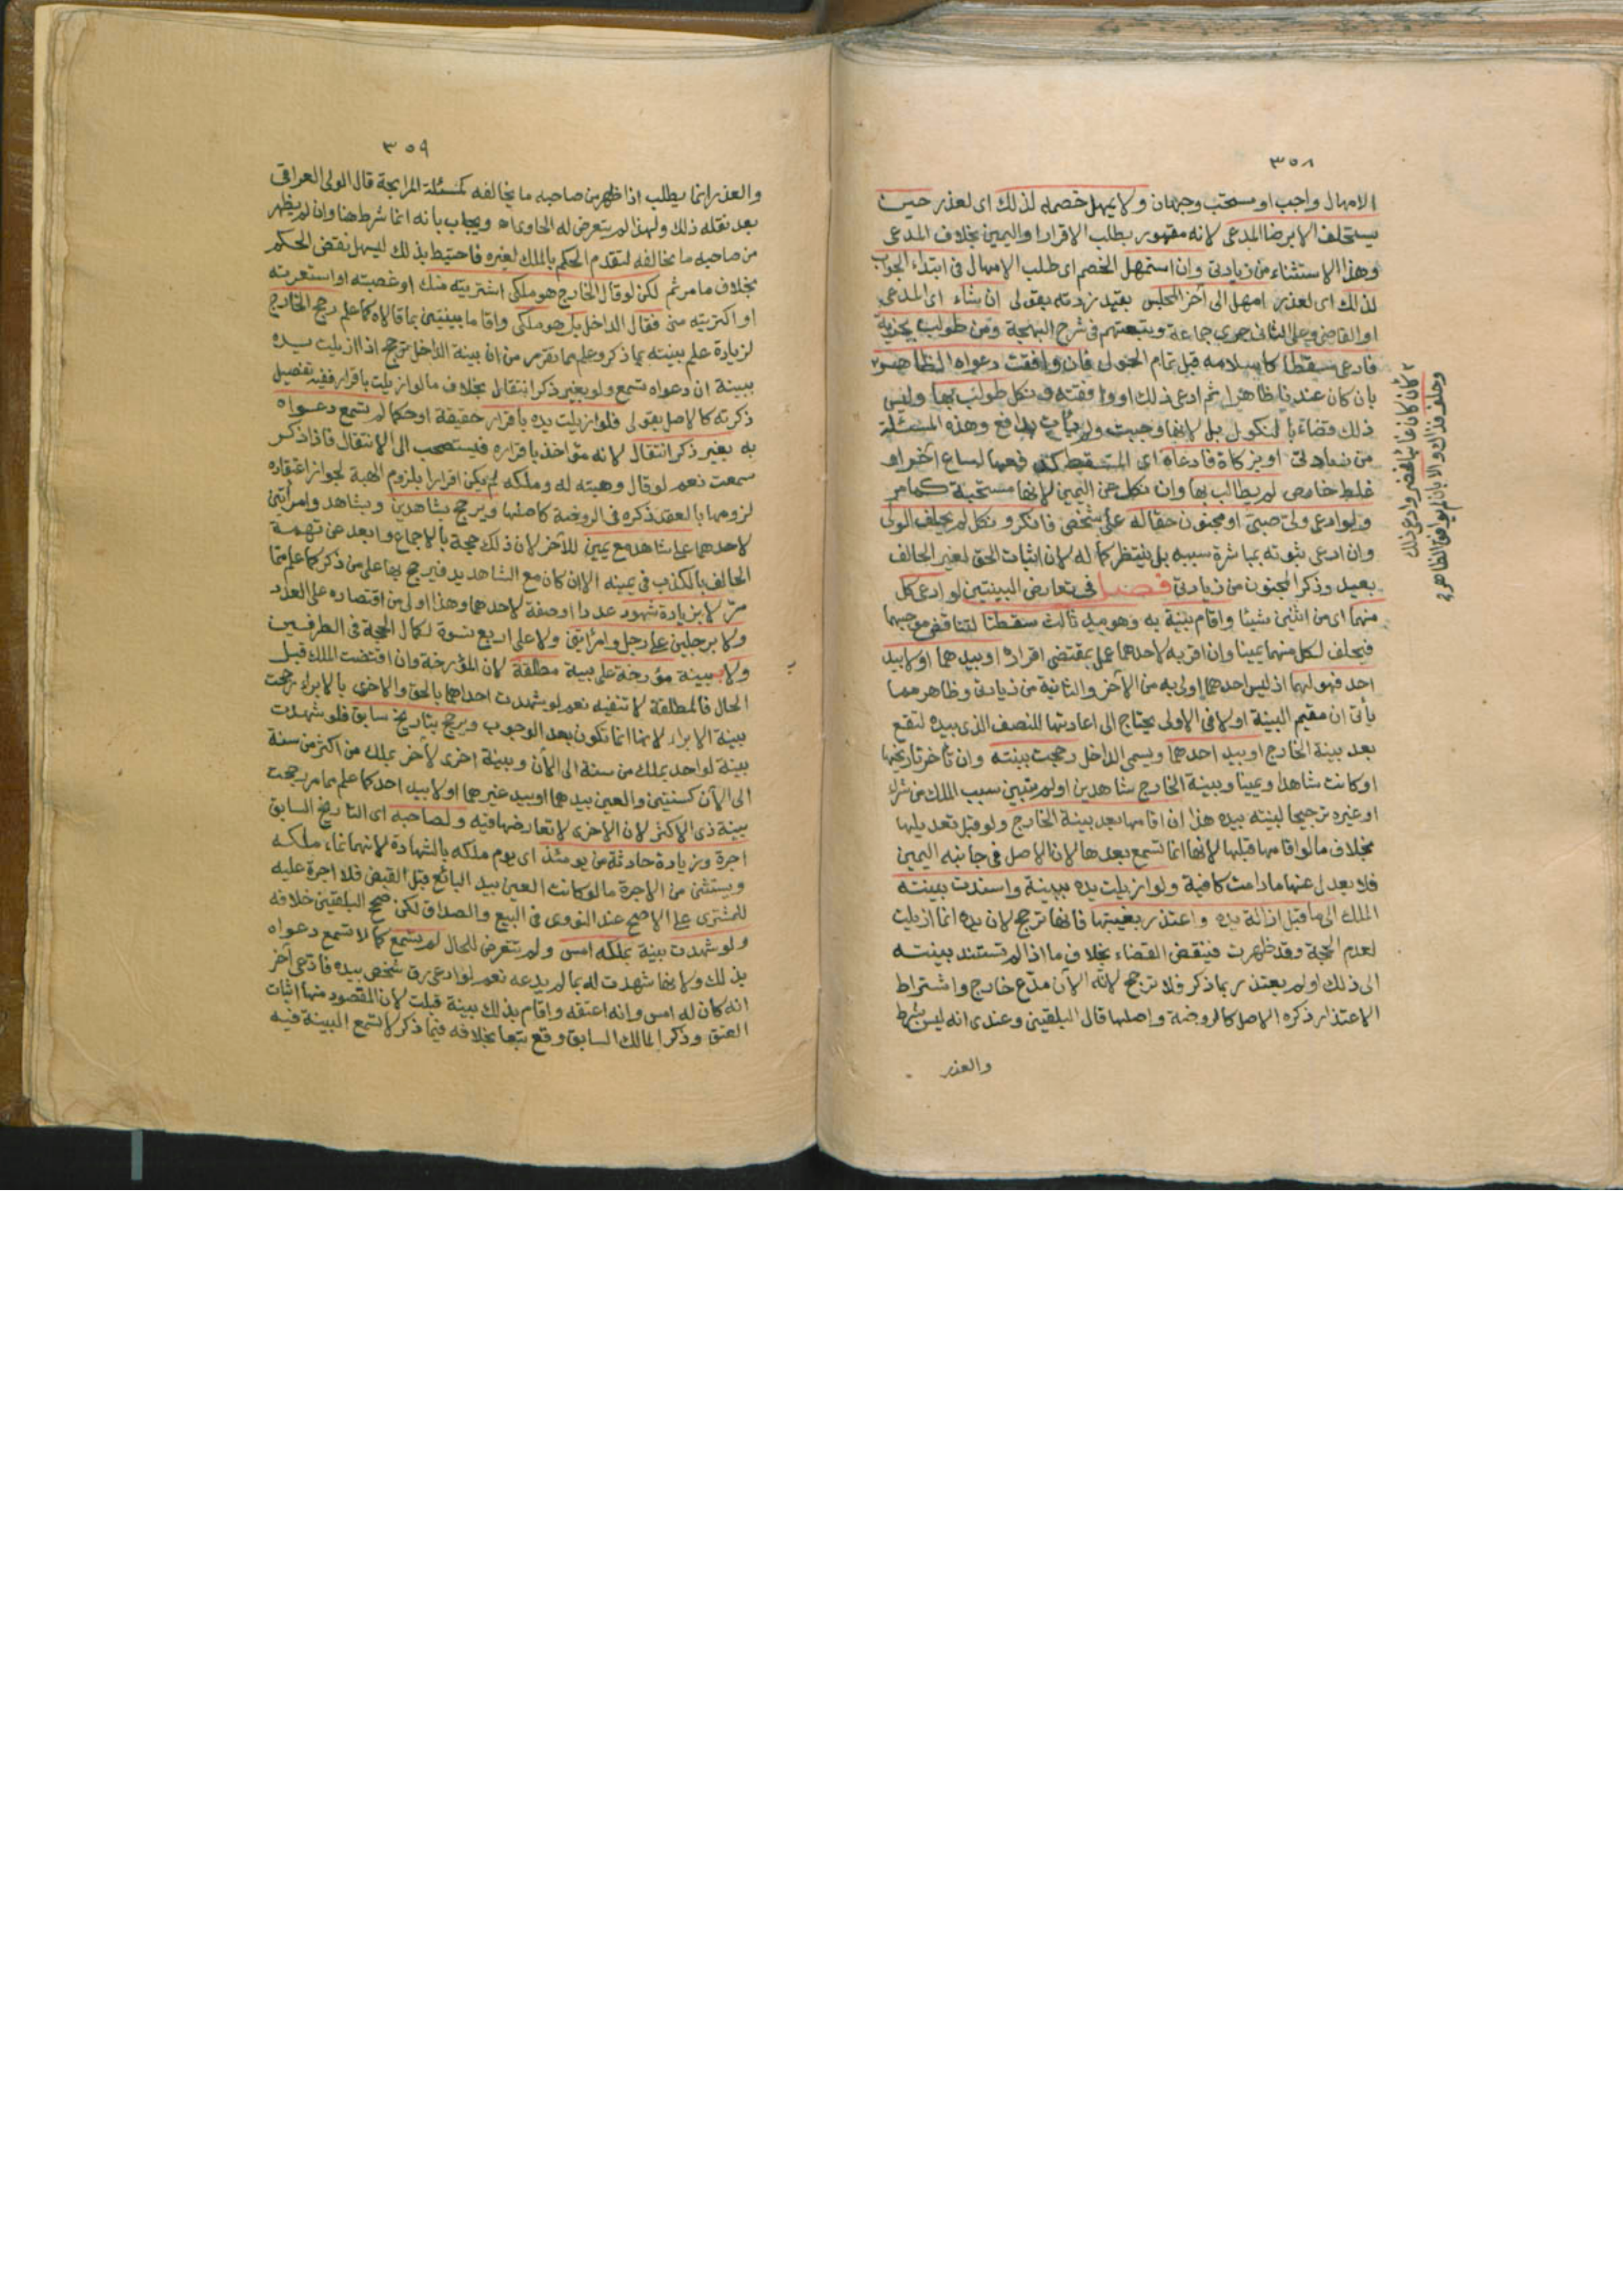 ٣٥٨
الامهال واجب او مستحب وجهان ولا يمهل خصمه لذلك اى لعذر حين
يستحلف الا برضا المدعى لانه مقهور بطلب الاقرار او اليمين بخلاف المدعى
وهذا الاستثناء من زيادتى وان استمهل الخصم اى طلب الامهال فى ابتداء الجواب
لذلك اى لعذر امهل الى آخر المجلس بقيد زدته بقولى ان شاء اى المدعى
او القاضى وعلى الثانى جرى جماعة وتبعتهم فى شرح البهجة ومن طولب بجزية
فادعى مسقطا كاسلامه قبل تمام الحول فان وافقت دعواه الظاهر
بان كان عندنا ظاهرا ثم ادعى ذلك او وافقته ونكل طولب بها وليس
ذلك قضاء بالنكول بل لانها وجبت ولم يأت بدافع وهذه المسئلة
من زيادتى او بزكاة فادعاه اى المسقط كدفعها لساع آخر او
غلط خارص لم يطالب بها وان نكل عن اليمين لانها مستحبة كما مر
ولو ادعى ولى صبى او مجنون حقا له على شخص فانكر ونكل لم يحلف الولى
وان ادعى ثبوته بمباشرة سببه بل ينتظر كماله لان اثبات الحق لغير الحالف
بعيد وذكر المجنون من زيادتى فصل فى تعارض البينتين لو ادعى كل
منهما اى من اثنين شيئا واقام بينة به وهو بيد ثالث سقطتا لتناقض موجبهما
فيحلف لكل منهما يمينا وان اقر به لاحدهما عمل بمقتضى اقراره او بيدهما او لا بيد
احد فهو لهما اذ ليس احدهما اولى به من الآخر والثانية من زيادتى وظاهر مما
يأتى ان مقيم البينة اولا فى الاولى يحتاج الى اعادتها للنصف الذى بيده لتقع
بعد بينة الخارج او بيد احدهما ويسمى الداخل رجحت بينته وان تأخر تاريخها
او كانت شاهدا ويمينا وبينة الخارج شاهدين او لم تبين سبب الملك من شراء
او غيره ترجيحا لبينته بيده هذا ان اقامها بعد بينة الخارج ولو قبل تعديلها
بخلاف ما لو اقامها قبلها لانها انما تسمع بعدها لان الاصل فى جانبه اليمين
فلا يعدل عنها ما دامت كافية ولو ازيلت يده ببينة واسندت بينته
الملك الى ما قبل ازالة يده واعتذر بغيبتها فانها ترجح لان يده انما ازيلت
لعدم الحجة وقد ظهرت فينقض القضاء بخلاف ما اذا لم تستند بينته
الى ذلك او لم يعتذر بما ذكر فلا ترجح لانه الآن مدّع خارج واشتراط
الاعتذار ذكره الاصل كالروضة واصلها قال البلقينى وعندى انه ليس بشرط
والعذر
كأن كان غائبا فحضر وادعى ذلك
وحلف فذاك والا بان لم يوافق الظاهر
٣٥٩
والعذر انما يطلب اذا ظهر من صاحبه ما يخالفه كمسئلة المرابحة قال الولى العراقى
بعد نقله ذلك ولهذا لم يتعرض له الحاوى اه ويجاب بانه انما شرط هنا وان لم يظهر
من صاحبه ما يخالفه لتقدم الحكم بالملك لغيره فاحتيط بذلك ليسهل نقض الحكم
بخلاف ما مر ثم لكن لو قال الخارج هو ملكى اشتريته منك او غصبته او استعرته
او اكتريته منى فقال الداخل بل هو ملكى واقاما بينتين بما قالاه كما علم رجح الخارج
لزيادة علم بينته بما ذكر وعلم مما تقرر من ان بينة الداخل ترجح اذا ازيلت يده
ببينة ان دعواه تسمع ولو بغير ذكر انتقال بخلاف ما لو ازيلت باقرار ففيه تفصيل
ذكرته كالاصل بقولى فلو ازيلت يده باقرار حقيقة او حكما لم تسمع دعواه
به بغير ذكر انتقال لانه مؤاخذ باقراره فيستصحب الى الانتقال فاذا ذكر
سمعت نعم لو قال وهبته له وملكه لم يكن اقرارا بلزوم الهبة لجواز اعتقاده
لزومها بالعقد ذكره فى الروضة كاصلها ويرجح بشاهدين وبشاهد وامرأتين
لاحدهما على شاهد مع يمين للآخر لان ذلك حجة بالاجماع وابعد عن تهمة
الحالف بالكذب فى يمينه الا ان كان مع الشاهد يد فيرجح بها على من ذكر كما علم مما
مرّ لا بزيادة شهود عددا او صفة لاحدهما وهذا اولى من اقتصاره على العدد
ولا برجلين على رجل وامرأتين ولا على اربع نسوة لكمال الحجة فى الطرفين
ولا ببينة مؤرخة على بينة مطلقة لان المؤرخة وان اقتضت الملك قبل
الحال فالمطلقة لا تنفيه نعم لو شهدت احداهما بالحق والاخرى بالابراء رجحت
بينة الابراء لانها انما تكون بعد الوجوب ويرجح بتاريخ سابق فلو شهدت
بينة لواحد بملك من سنة الى الآن وبينة اخرى لآخر بملك من اكثر من سنة
الى الآن كسنتين والعين بيدهما او بيد غيرهما او لا بيد احد كما علم مما مر رجحت
بينة ذى الاكثر لان الاخرى لا تعارضها فيه ولصاحبه اى التاريخ السابق
اجرة وزيادة حادثة من يومئذ اى يوم ملكه بالشهادة لانهما نماء ملكه
ويستثنى من الاجرة ما لو كانت العين بيد البائع قبل القبض فلا اجرة عليه
للمشترى على الاصح عند النووى فى البيع والصداق لكن صحح البلقينى خلافه
ولو شهدت بينة بملكه امس ولم تتعرض للحال لم تسمع كما لا تسمع دعواه
بذلك ولانها شهدت له بما لم يدعه نعم لو ادعى رق شخص بيده فادّعى آخر
انه كان له امس وانه اعتقه واقام بذلك بينة قبلت لان المقصود منها اثبات
العتق وذكر المالك السابق وقع تبعا بخلافه فيما ذكر لا تسمع البينة فيه